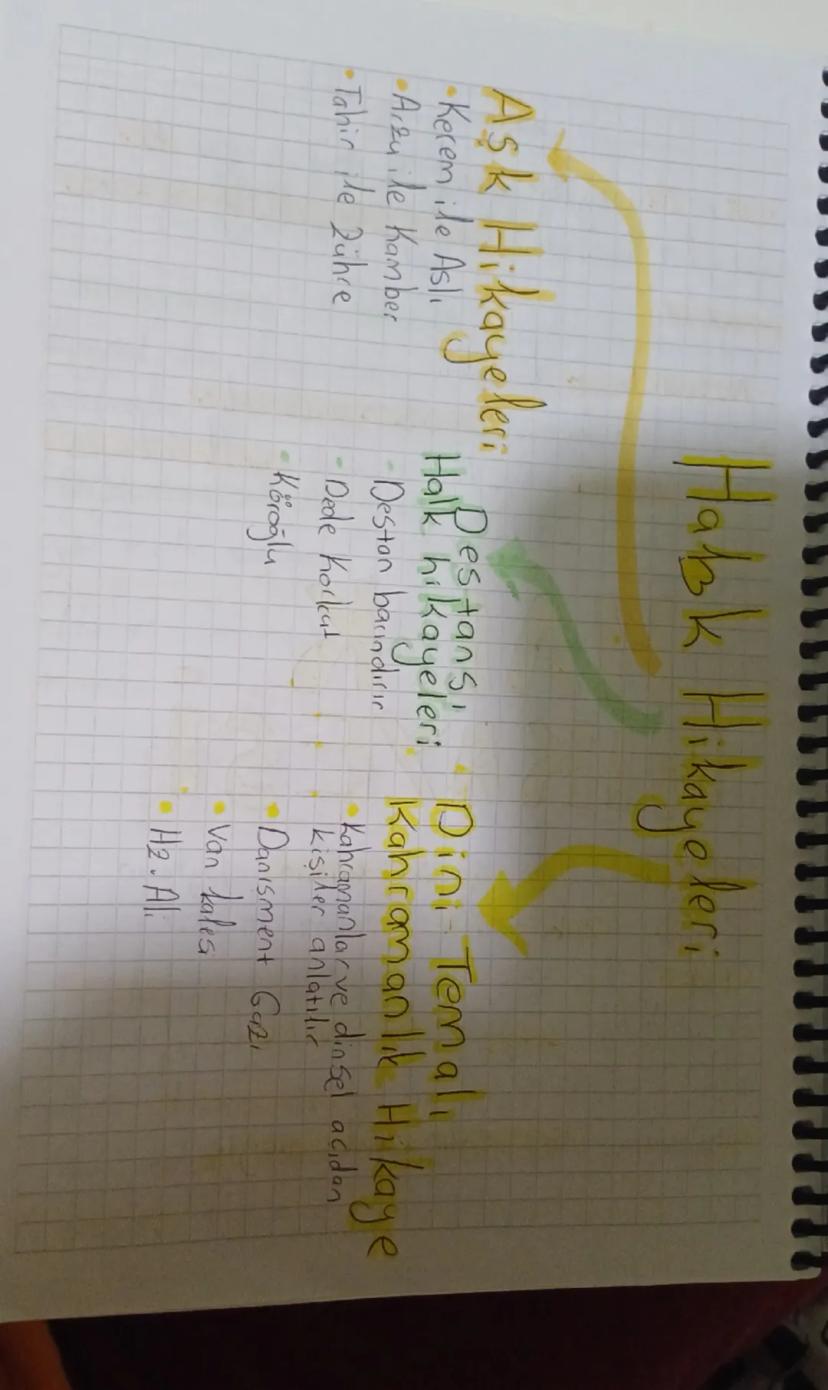 Halk Hikayeleri
Aşk Hikayeleri
• Kerem ile Aslı
• Arzu ile Kamber
• Tahir ile Zühre
Destansı
Halk hikayeleri
• Destan barındırır
• Dede Korkut
• Köroğlu
Dini Temalı
Kahramanlık Hikaye
• Kahramanlar ve dinsel açıdan
kişiler anlatılır
• Danışment Gazi
• Van kalesi
• Hz. Ali